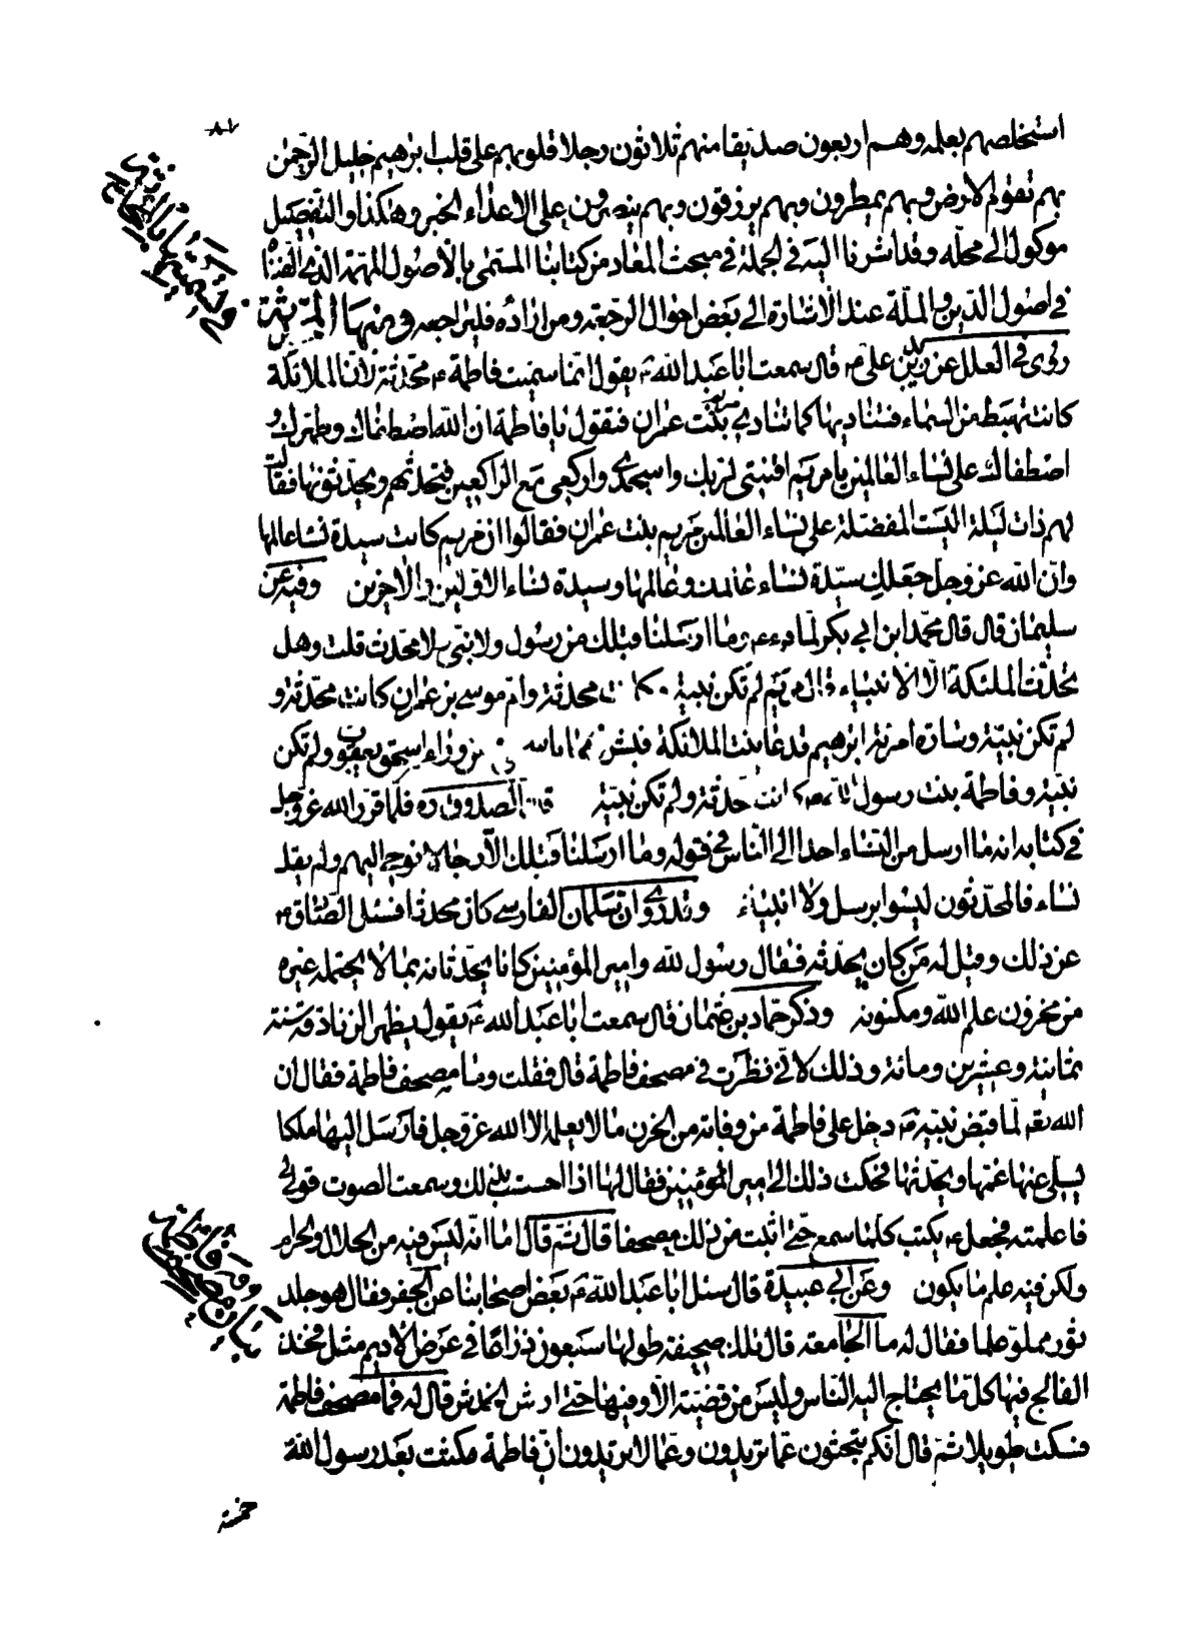 ٨٧
استخلصهم بعلمه وهم اربعون صديقا منهم ثلاثون رجلا قلوبهم على قلب ابرهيم خليل الرحمن
بهم تقوم الارض وبهم يمطرون وبهم يرزقون وبهم ينصرون على الاعداء الخبر وهكذا والتفصيل
موكول الى محله وقد اشرنا اليه في الجملة في مبحث المعاد من كتابنا المسمى بالاصول المهمة الذي الفناه
في اصول الدين والملة عند الاشارة الى بعض احوال الرجعة ومن اراده فليراجعه ومنها المحدثة
روى في العلل عن زيد بن على قال سمعت ابا عبد الله ع يقول انما سميت فاطمة ع محدثة لان الملائكة
كانت تهبط من السماء فتناديها كما تنادى مريم بنت عمران فتقول يا فاطمة ان الله اصطفاك وطهرك و
اصطفاك على نساء العالمين يا مريم اقنتى لربك واسجدى واركعى مع الراكعين فتحدثهم ويحدثونها فقالت
لهم ذات ليلة اليست المفضلة على نساء العالمين مريم بنت عمران فقالوا ان مريم كانت سيدة نساء عالمها
وان الله عز وجل جعلك سيدة نساء عالمك وعالمها وسيدة نساء الاولين والاخرين وفيه عن
سليمان قال قال محمد ابن ابي بكر لما قرء وما ارسلنا قبلك من رسول ولا نبى ولا محدث قلت وهل
تحدث الملئكة الا الانبياء قال مريم لم تكن نبية وكانت محدثة وام موسى بن عمران كانت محدثة و
لم تكن نبية وسارة امرئة ابرهيم قد عاينت الملائكة فبشروها باسحق ومن وراء اسحق يعقوب ولم تكن
نبية وفاطمة بنت رسول الله كانت محدثة ولم تكن نبية قال الصدوق ره فلما قد الله عز وجل
في كتابه انه ما ارسل من النساء احدا الى الناس في قوله وما ارسلنا قبلك الا رجالا نوحى اليهم ولم يقل
نساء فالمحدثون ليسوا برسل ولا انبياء وقد روى ان سلمان الفارسى كان محدثا فسئل الصادق ع
عن ذلك وقيل له من كان يحدثه فقال رسول الله وامير المؤمنين كانا يحدثانه بما لا يحتمله غيره
من مخزون علم الله ومكنونه وذكر حماد بن عثمان قال سمعت ابا عبد الله ع يقول يظهر الزنادقة سنة
ثمانية وعشرين ومائة وذلك لانى نظرت في مصحف فاطمة قال فقلت وما مصحف فاطمة فقال ان
الله تعه لما قبض نبيه ص دخل على فاطمة من وفاته من الحزن ما لا يعلمه الا الله عز وجل فارسل اليها ملكا
يسلى عنها غمها ويحدثها فحكت ذلك الى امير المؤمنين فقال لها اذا احسست بذلك وسمعت الصوت قولى لى
فاعلمته فجعل ع يكتب كلما سمع حتى اثبت من ذلك مصحفا قال ثم قال اما انه ليس فيه من الحلال والحرام
ولكن فيه علم ما يكون وعن ابى عبيدة قال سئل ابا عبد الله ع بعض اصحابنا عن الجفر فقال هو جلد
ثور مملو علما فقال له ما الجامعة قال تلك صحيفة طولها سبعون ذراعا في عرض الاديم مثل فخذ
الفالج فيها كل ما يحتاج اليه الناس وليس من قضية الا وفيها حتى ارش الخدش قال له فما مصحف فاطمة
فسكت طويلا ثم قال انكم تبحثون عما تريدون وعما لا تريدون ان فاطمة مكثت بعد رسول الله
خمسة